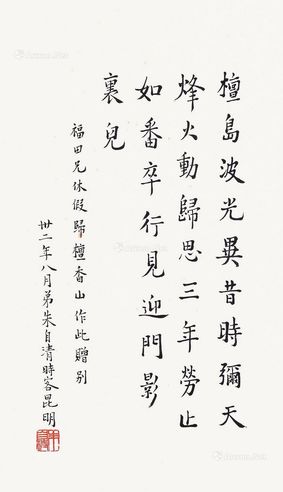 檀島波光異昔時彌天
烽火動歸思三年勞止
如番卒行見迎門影
裏兒
福田兄休假歸檀香山作此贈別
卅二年八月弟朱自清時客昆明